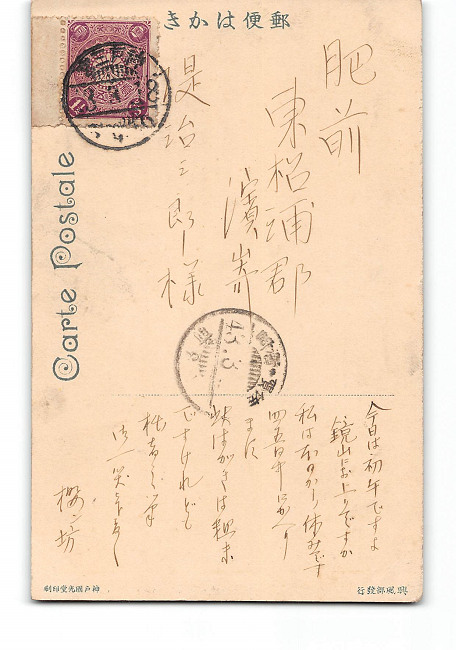 郵便はかき
肥前
東松浦郡
濱崎
堤治三郎様
Carte Postale
今日は初午ですよ
鏡山にお上りですか
私は本日から休みです
四五日中にかへり
ます
此はがきは粗末
ですけれども
御一笑下さい
神戸國光堂印刷
興風部發行